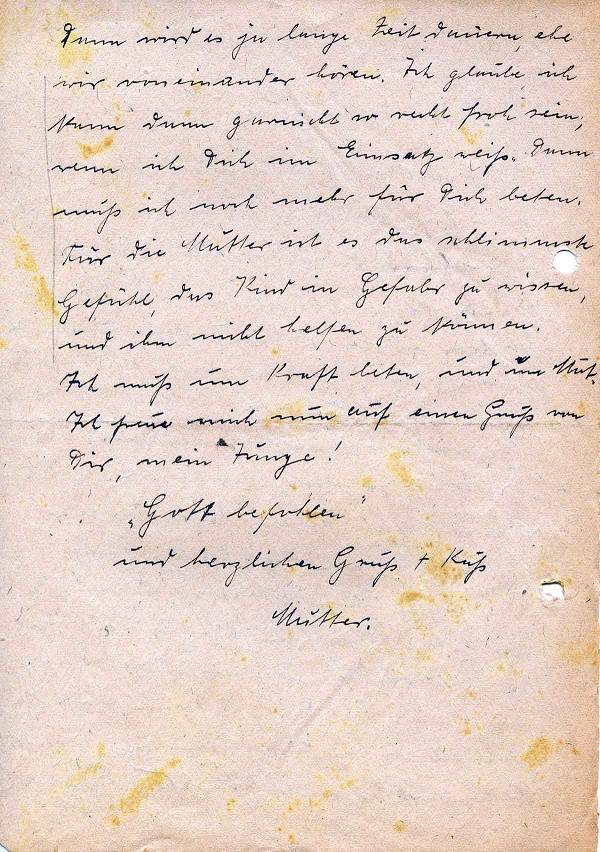 Dann wird es ja lange Zeit dauern, ehe
wir voneinander hören. Ich glaube, ich
kann dann garnicht so recht froh sein,
wenn ich Dich im Einsatz weiß. Dann
muß ich noch mehr für Dich beten.
Für die Mutter ist es das schlimmste
Gefühl, das Kind in Gefahr zu wissen,
und ihm nicht helfen zu können.
Ich muß um Kraft beten, und um Mut.
Ich freue mich nun auf einen Gruß von
Dir, mein Junge!
„Gott befohlen"
und herzlichen Gruß + Kuß
Mutter.